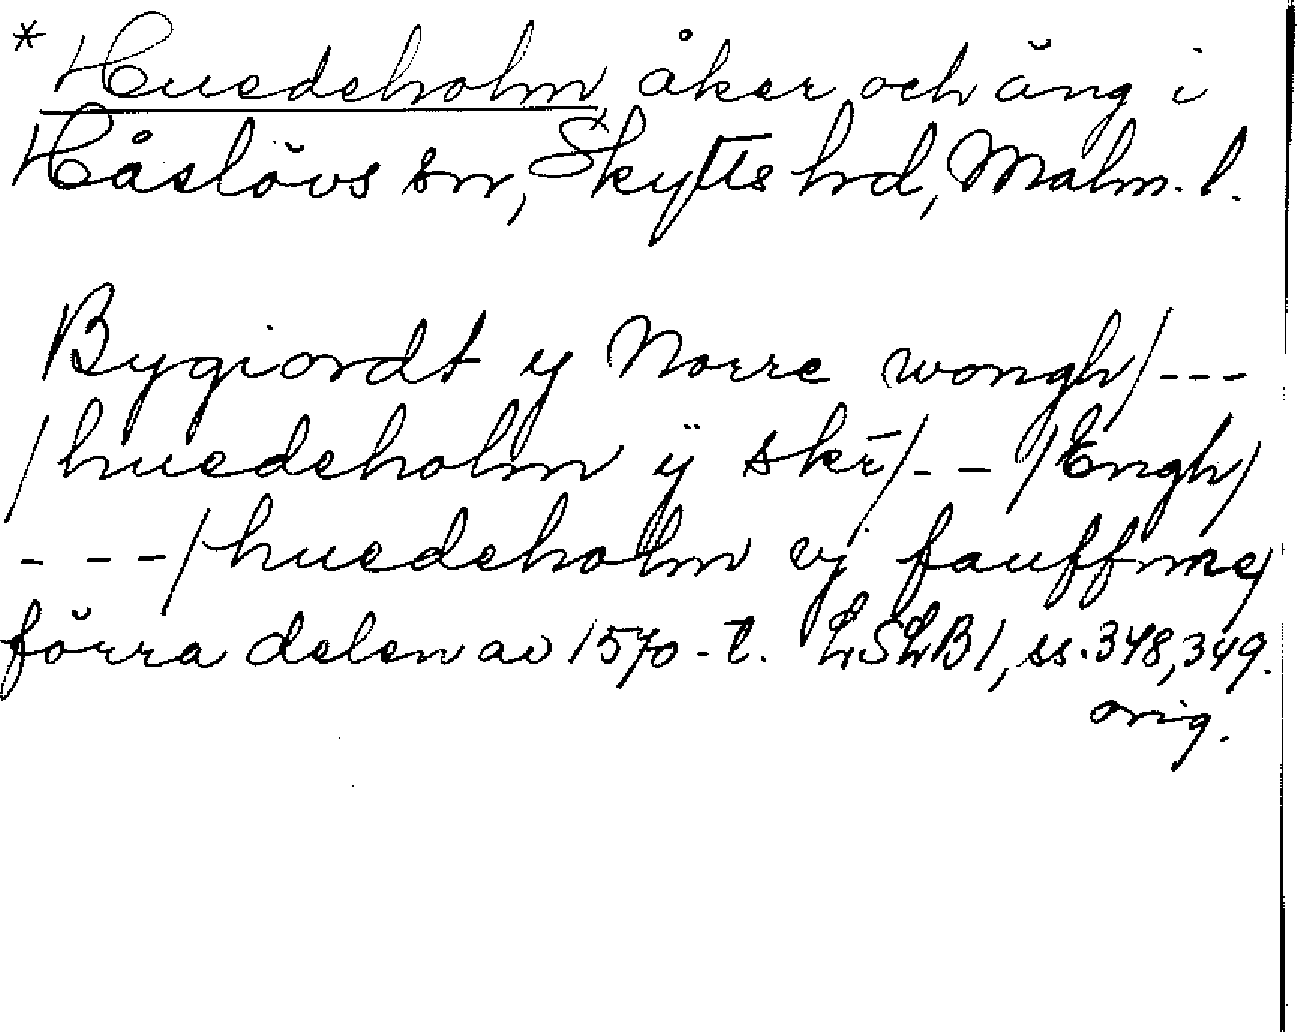 * Huedeholm åker och äng i
Håslövs sn, Skytts hd, Malm. l.
Bygiordt y Norre wongh/---
/huedeholm ÿ skr̄/-- /Engh/
---/huedeholm vj fauffme/
förra delen av 1570-t. LSLB1, ss. 348, 349.
orig.